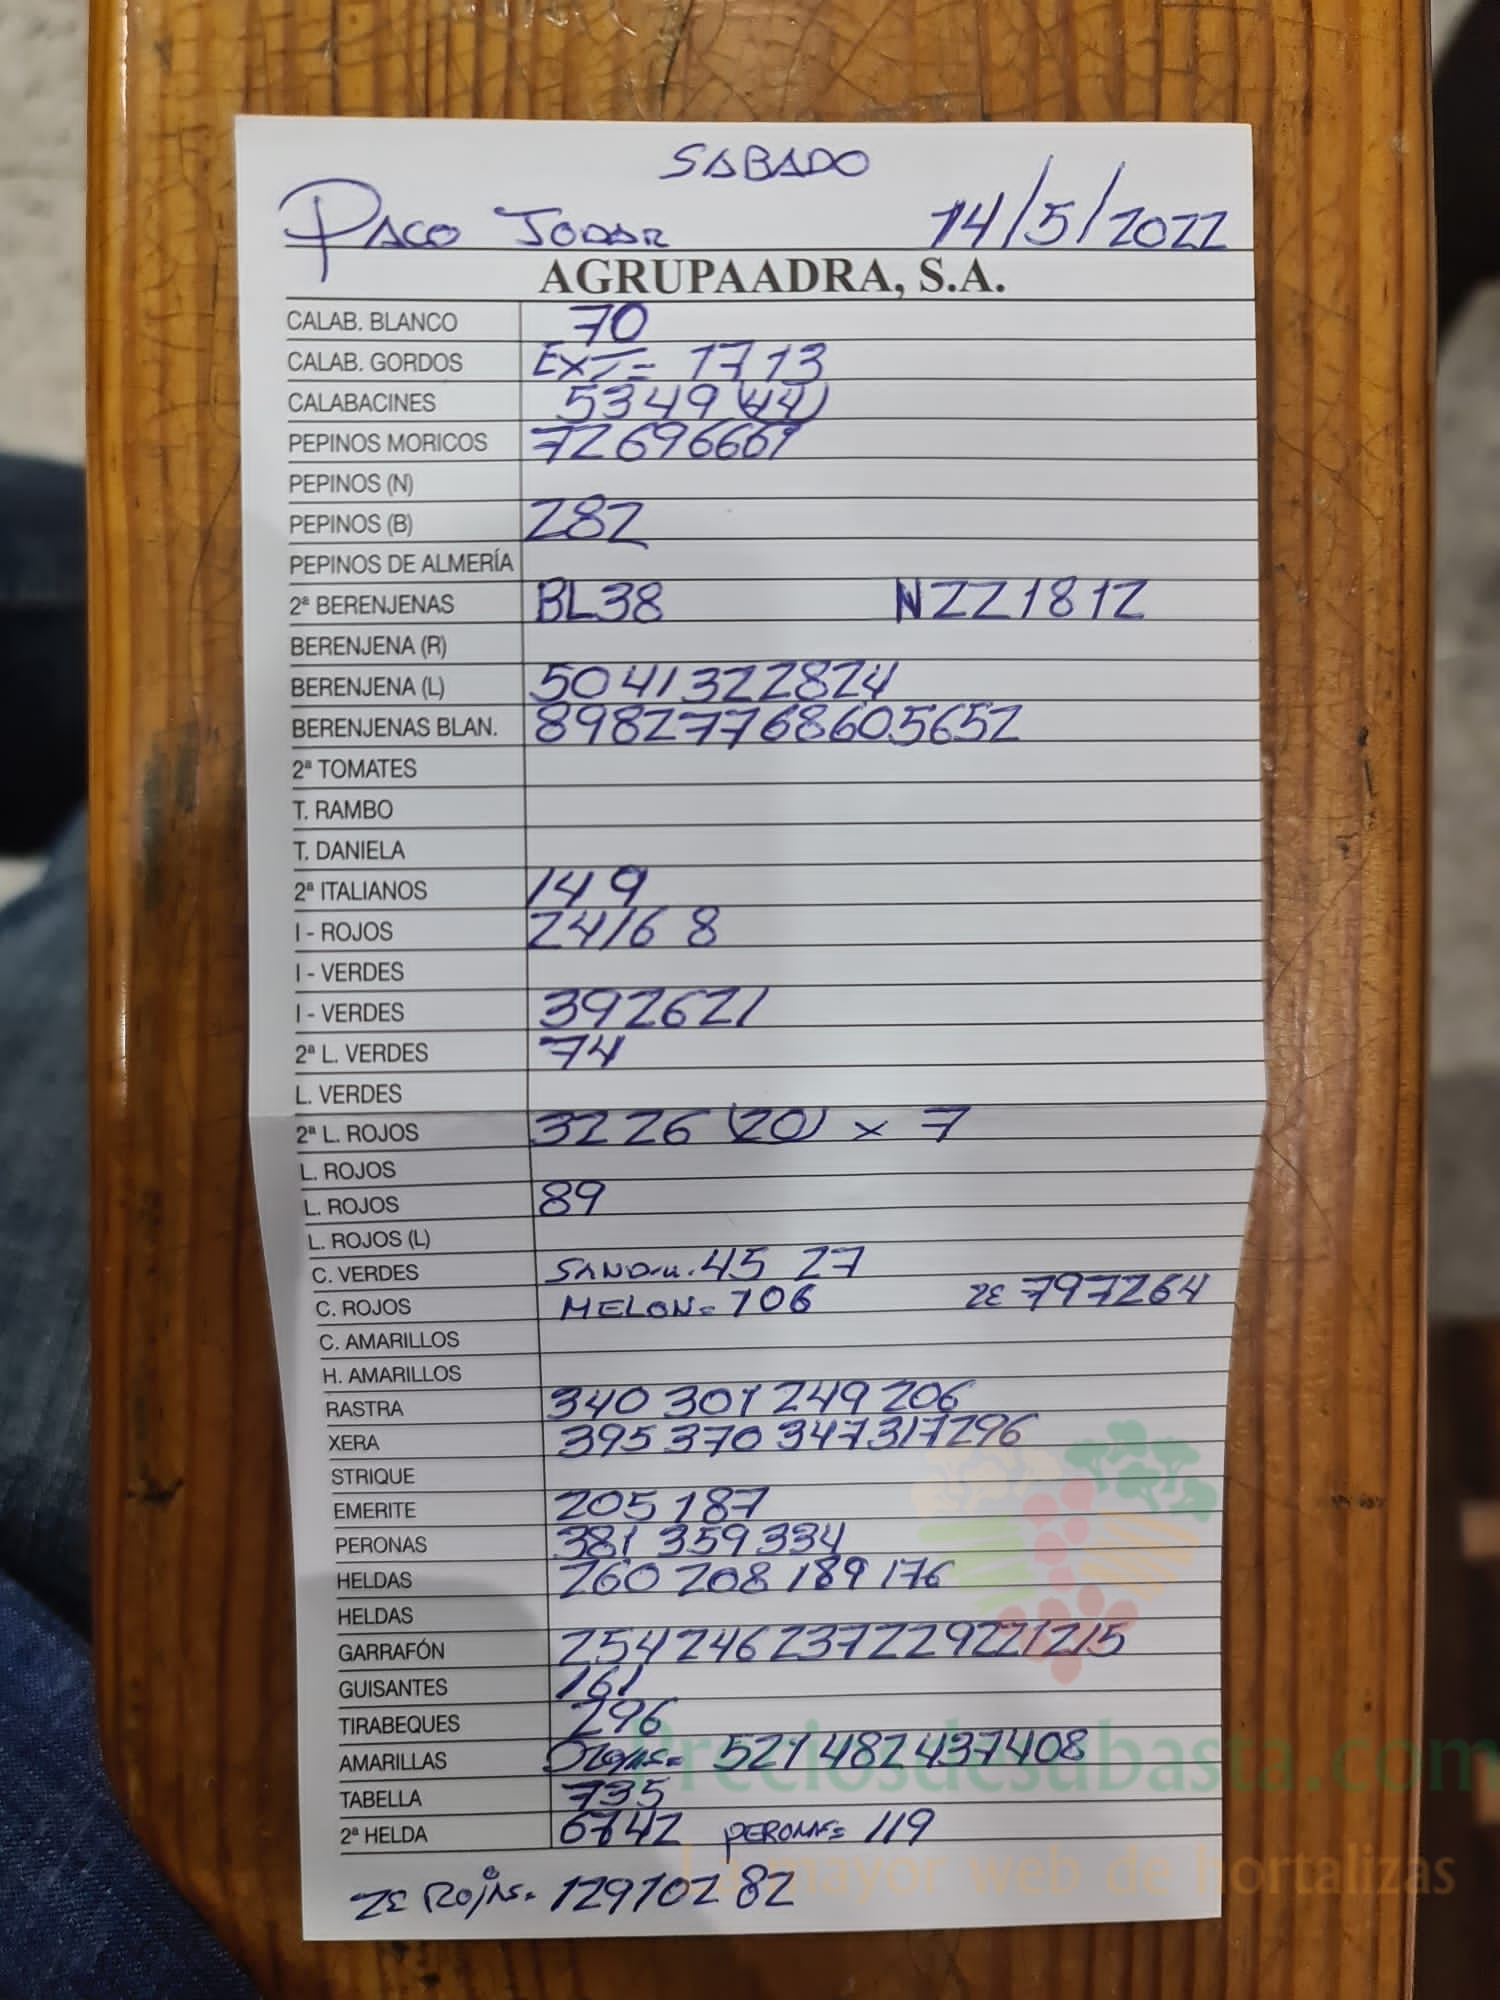 SABADO
PACO JODAR 14/5/2022
AGRUPAADRA, S.A.
CALAB. BLANCO 70
CALAB. GORDOS EXT= 17 13
CALABACINES 53 49 (44)
PEPINOS MORICOS 72 69 66 61
PEPINOS (N)
PEPINOS (B) 282
PEPINOS DE ALMERÍA
2ª BERENJENAS BL38 N22 18 12
BERENJENA (R)
BERENJENA (L) 50 41 32 28 24
BERENJENAS BLAN. 89 82 77 68 60 56 52
2ª TOMATES
T. RAMBO
T. DANIELA
2ª ITALIANOS 14 9
I - ROJOS 24 16 8
I - VERDES
I - VERDES 39 26 21
2ª L. VERDES 74
L. VERDES
2ª L. ROJOS 32 26 (20) x 7
L. ROJOS
L. ROJOS 89
L. ROJOS (L)
C. VERDES 45 27
C. ROJOS MELON= 106 2E 79 72 64
C. AMARILLOS
H. AMARILLOS
RASTRA 340 301 249 206
XERA 395 370 347 317 296
STRIQUE
EMERITE 205 187
PERONAS 381 359 334
HELDAS 260 208 189 176
HELDAS
GARRAFÓN 254 246 237 229 221 215
GUISANTES 161
TIRABEQUES 296
AMARILLAS 521 482 437 408
TABELLA 735
2ª HELDA 119
2E ROJAS= 129 102 82
Preciosdesubasta.com
La mayor web de hortalizas